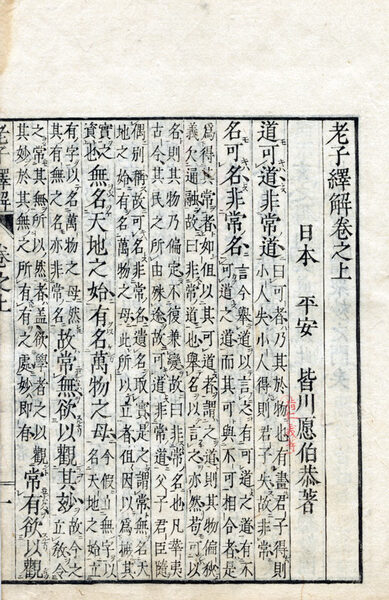 老子繹解卷之上
日本 平安 皆川愿伯恭著
道可道非常道
曰可者乃其於物也有畫君子得則
小人失小人得則君子失故非常
名可名非常名
言今舉道以言之有可道之道有不
可道之道而其可與不可相合者是
爲得其常者如但以其可道者謂之道則其物偏狹
義欠通融故曰非常道也舉名以言之亦然苟可以
名則其物乃偏定不彼兼變故曰非常名也凡華夷
古今其民之所由殊途故可道非常道父子君臣隨
偶別稱故可名非常名遺名取實是之謂常無名天
地之始有名萬物之母此所以立者但因以爲檢其
實之
資也
無名天地之始有名萬物之母
今假立無字以
名天地之始立
有字以名萬物之母然
其有無之名亦非常名
故常無欲以觀其妙
故今之
立教令
之常其無所以然者蓋欲學者之以觀
其妙於其無之所有有之處妙即有
常有欲以觀
老子繹解
卷之上
一